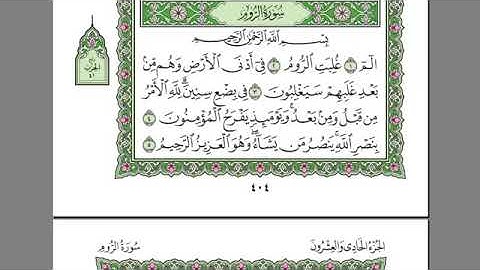 سُورَةُ الرُّومِ
بِسْمِ اللَّهِ الرَّحْمَٰنِ الرَّحِيمِ
الٓمٓ ١ غُلِبَتِ الرُّومُ ٢ فِىٓ أَدْنَى الْأَرْضِ وَهُم مِّنۢ
بَعْدِ غَلَبِهِمْ سَيَغْلِبُونَ ٣ فِى بِضْعِ سِنِينَ ۗ لِلَّهِ الْأَمْرُ
مِن قَبْلُ وَمِنۢ بَعْدُ ۚ وَيَوْمَئِذٍ يَفْرَحُ الْمُؤْمِنُونَ ٤
بِنَصْرِ اللَّهِ ۚ يَنصُرُ مَن يَشَآءُ ۖ وَهُوَ الْعَزِيزُ الرَّحِيمُ ٥
الحزب
٤١
٤٠٤
الجُزْءُ الحَادِى وَالعِشْرُونَ
سُورَةُ الرُّومِ